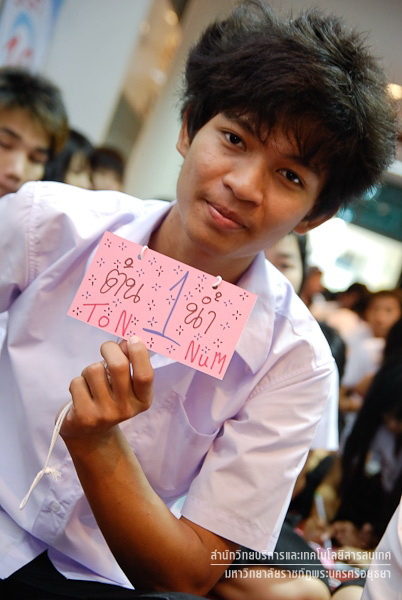 ต้น 1 น้ำ
TôN NüM
สำนักวิทยบริการและเทคโนโลยีสารสนเทศ
มหาวิทยาลัยราชภัฏพระนครศรีอยุธยา